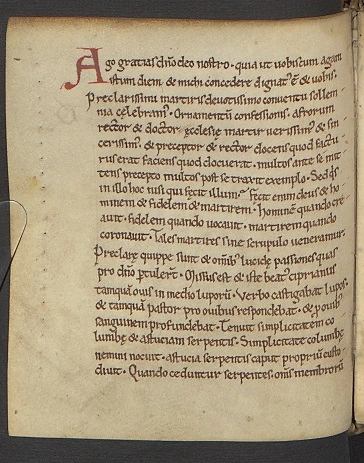 Ago gratias dn̄o deo nostro · quia ut uobiscum agam
istum diem · & michi concedere dignat᷒ ē & uobis ·
Preclarissimi martiris deuotissimo conuentu sollem
nia celebram᷒ · Ornamentum confessionis · afrorum
rector & doctor · ęcclesię martir uerissim᷒ & sin
cerissim᷒ · & preceptor & rector docens quod factu
rus erat faciens quod docuerat · multos ante se mit
tens precepto multos post se traxit exemplo · Sed q̄s
in illo hoc nisi qui fecit illum · fecit enim deus & ho
minem & fidelem & martirem · hominē quando cre
auit · fidelem quando uocauit · martirem quando
coronauit · Tales martires sine scrupulo ueneramur ·
Preclarę quippe sunt & om̄ib᷒ lucidę passiones quas
pro dn̄o ptulert̄ · Missus est & iste beat᷒ ciprianus
tamquā ouis in medio luporū · Verbo castigabat lupos ·
& tamquā pastor pro ouibus respondebat · & p ouib᷒
sanguinem profundebat · Tenuit simplicitatem co
lumbę & astuciam serpentis · Simplicitate columbę
nemini nocuit · astucia serpentis caput propriū custo
diuit · Quando ceduntur serpentes · om̄s membrorū